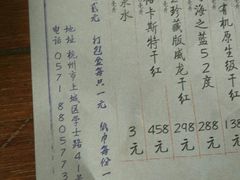 有机原生级干 138元
海之蓝52度 288元
珍藏版威龙干红 298元
格卡斯特干红 458元
水 3元
贰元 打包盒每只一元 纸巾每份一
地址 杭州市上城区学士路41
电话 0571 880573